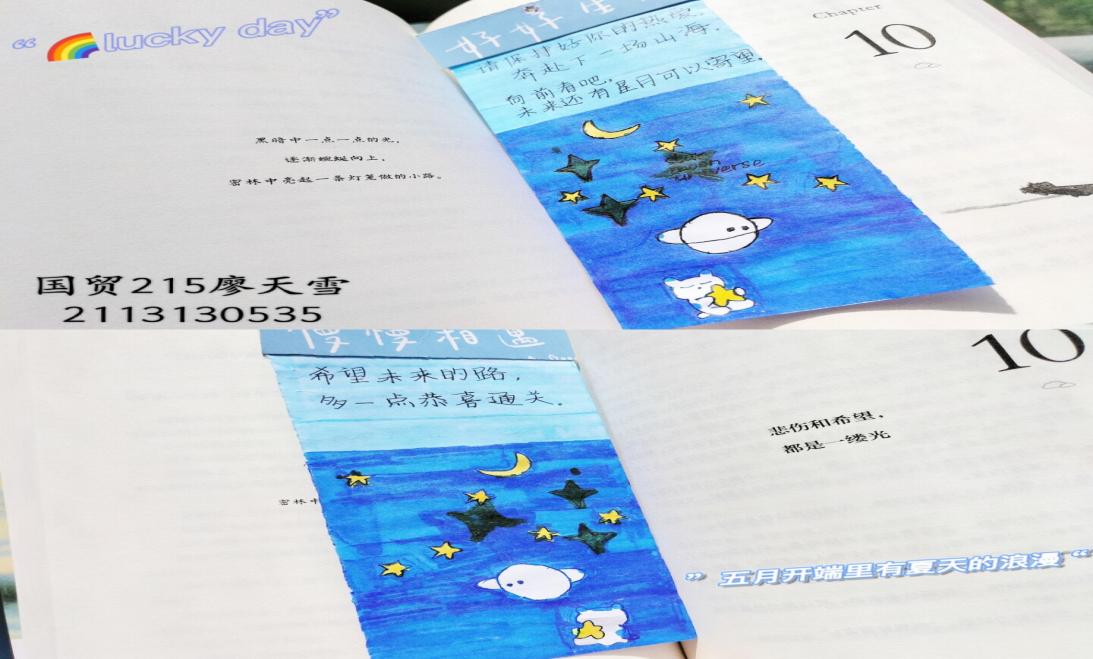 “ lucky day”
黑暗中一点一点的光，
逐渐蜿蜒向上，
密林中亮起一条灯笼做的小路。
国贸215廖天雪
2113130535
好好生
请保持好你的热爱，
奔赴下一场山海，
向前看吧，
未来还有星月可以寄望，
Chapter
10
慢慢相遇
希望未来的路，
多一点恭喜通关。
密林中
10
悲伤和希望，
都是一缕光
” 五月开端里有夏天的浪漫 “